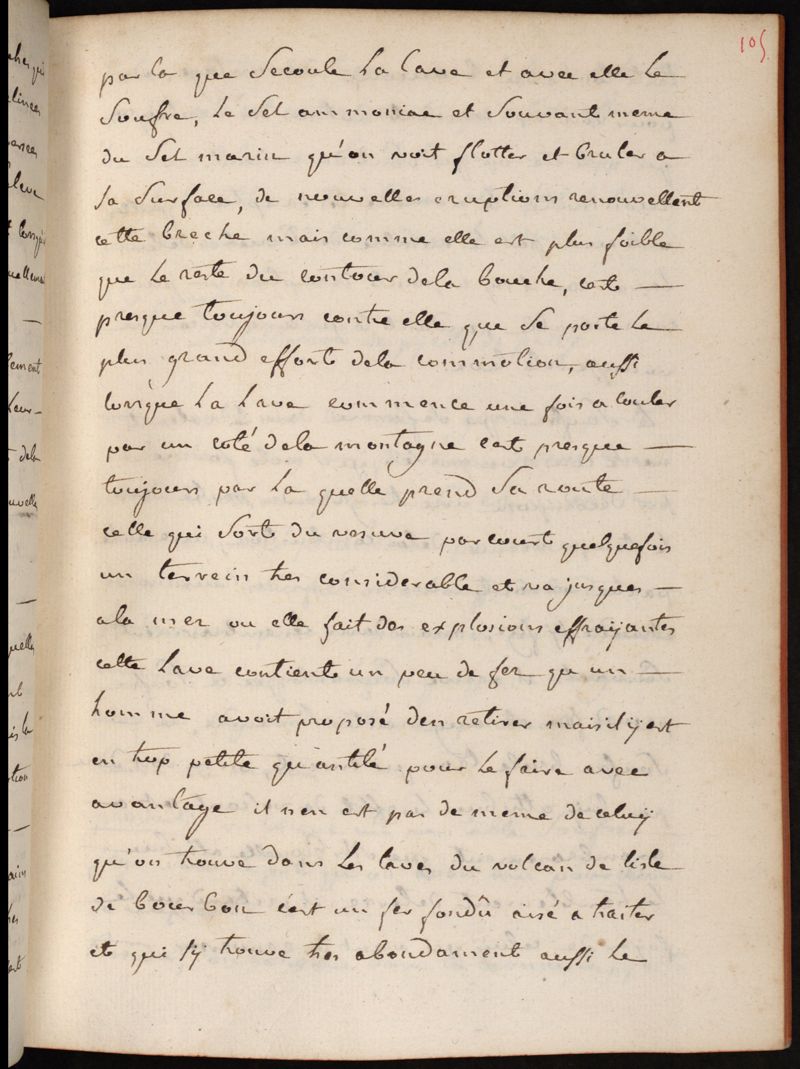 105
par la que Secoule La lave et avec elle Le
Soufre, Le Sel ammoniac et Souvant meme
du Sel marin qu'on voit flotter et bruler a
La Surface, de nouvelles eruptions renouvellent
cette breche mais comme elle est plus foible
que Le reste du contour dela bouche, cest —
presque toujours contre elle que Se porte Le
plus grand effort dela commotion, aussi
lorsque La Lave commence une fois a couler
par un coté dela montagne cest presque —
toujours par La quelle prend Sa route —
celle qui Sort du vesuve parcourt quelquefois
un terrein tres considerable et va jusques —
ala mer ou elle fait des explosions effraijantes
cette Lave contient un peu de fer qu'un —
homme avoit proposé den retirer mais il ij est
en trop petite quantité pour Le faire avec
avantage il n'en est pas de meme de celuij
qu'on trouve dans Les laves du volcan de lisle
de bourbon c'est un fer fondû aisé a traiter
et qui s'ij trouve tres abondament aussi Le